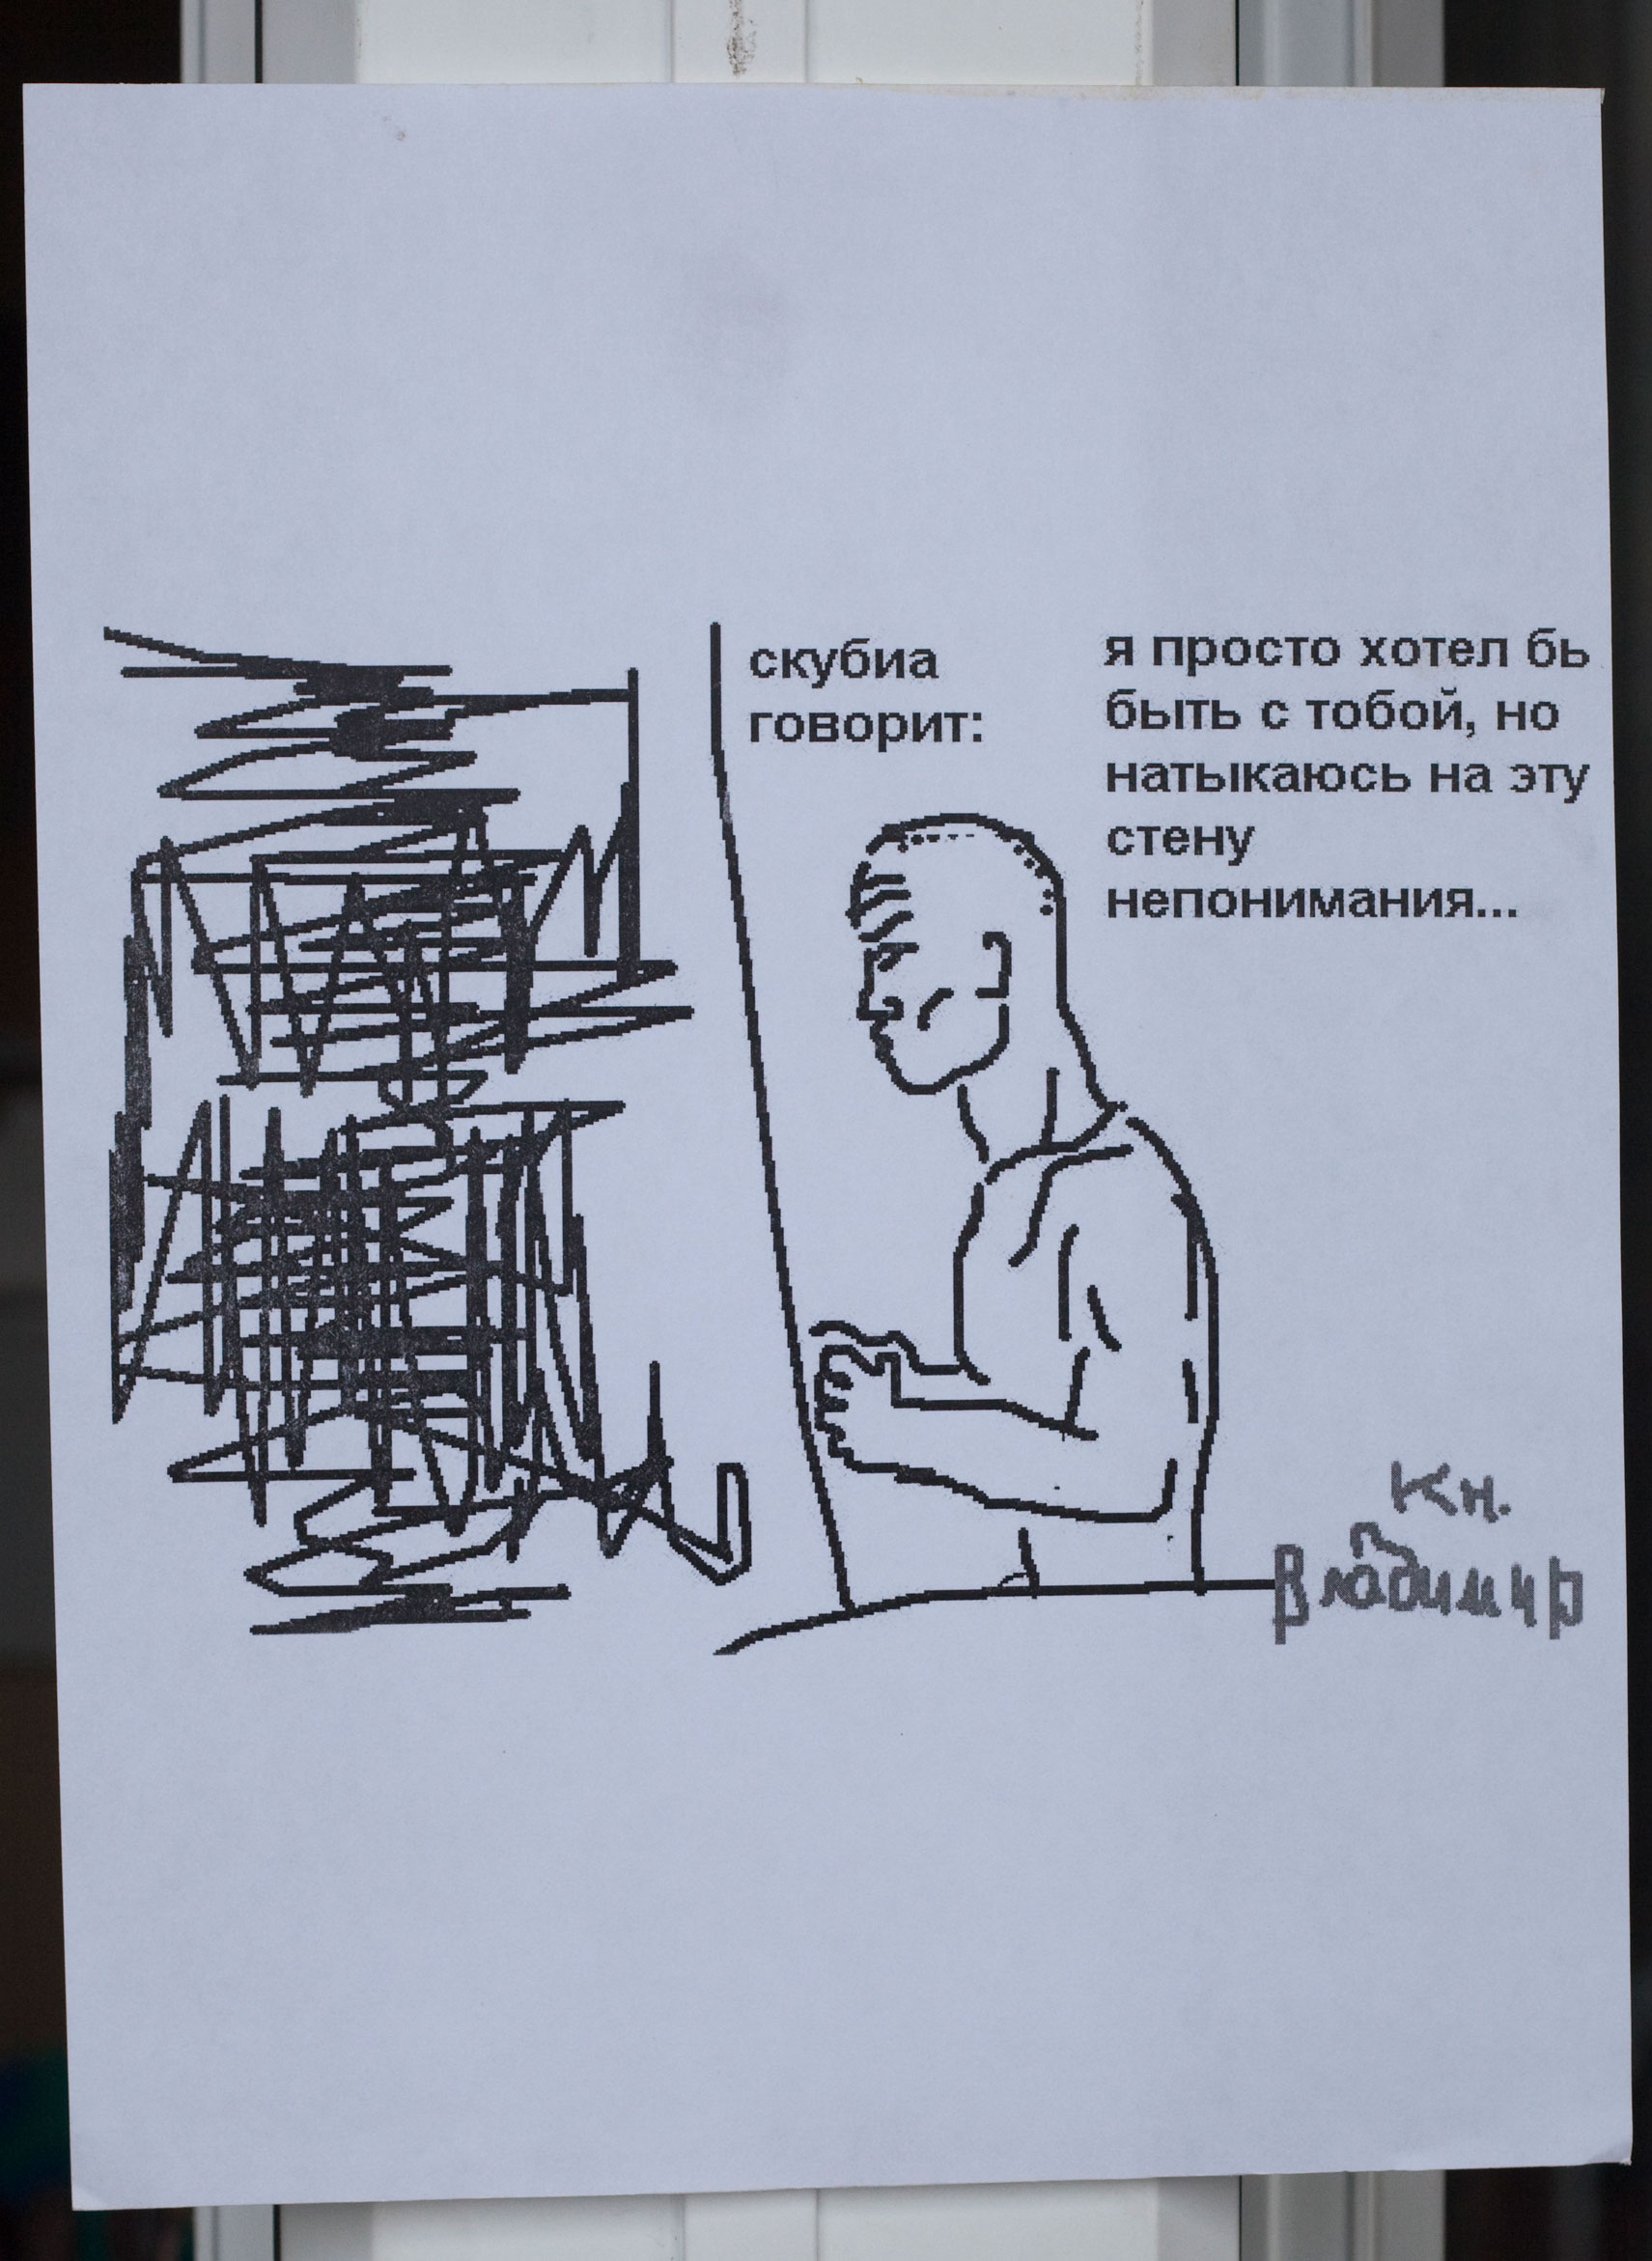 скубиа
говорит:
я просто хотел бь
быть с тобой, но
натыкаюсь на эту
стену
непонимания...
Кн.
Владимир